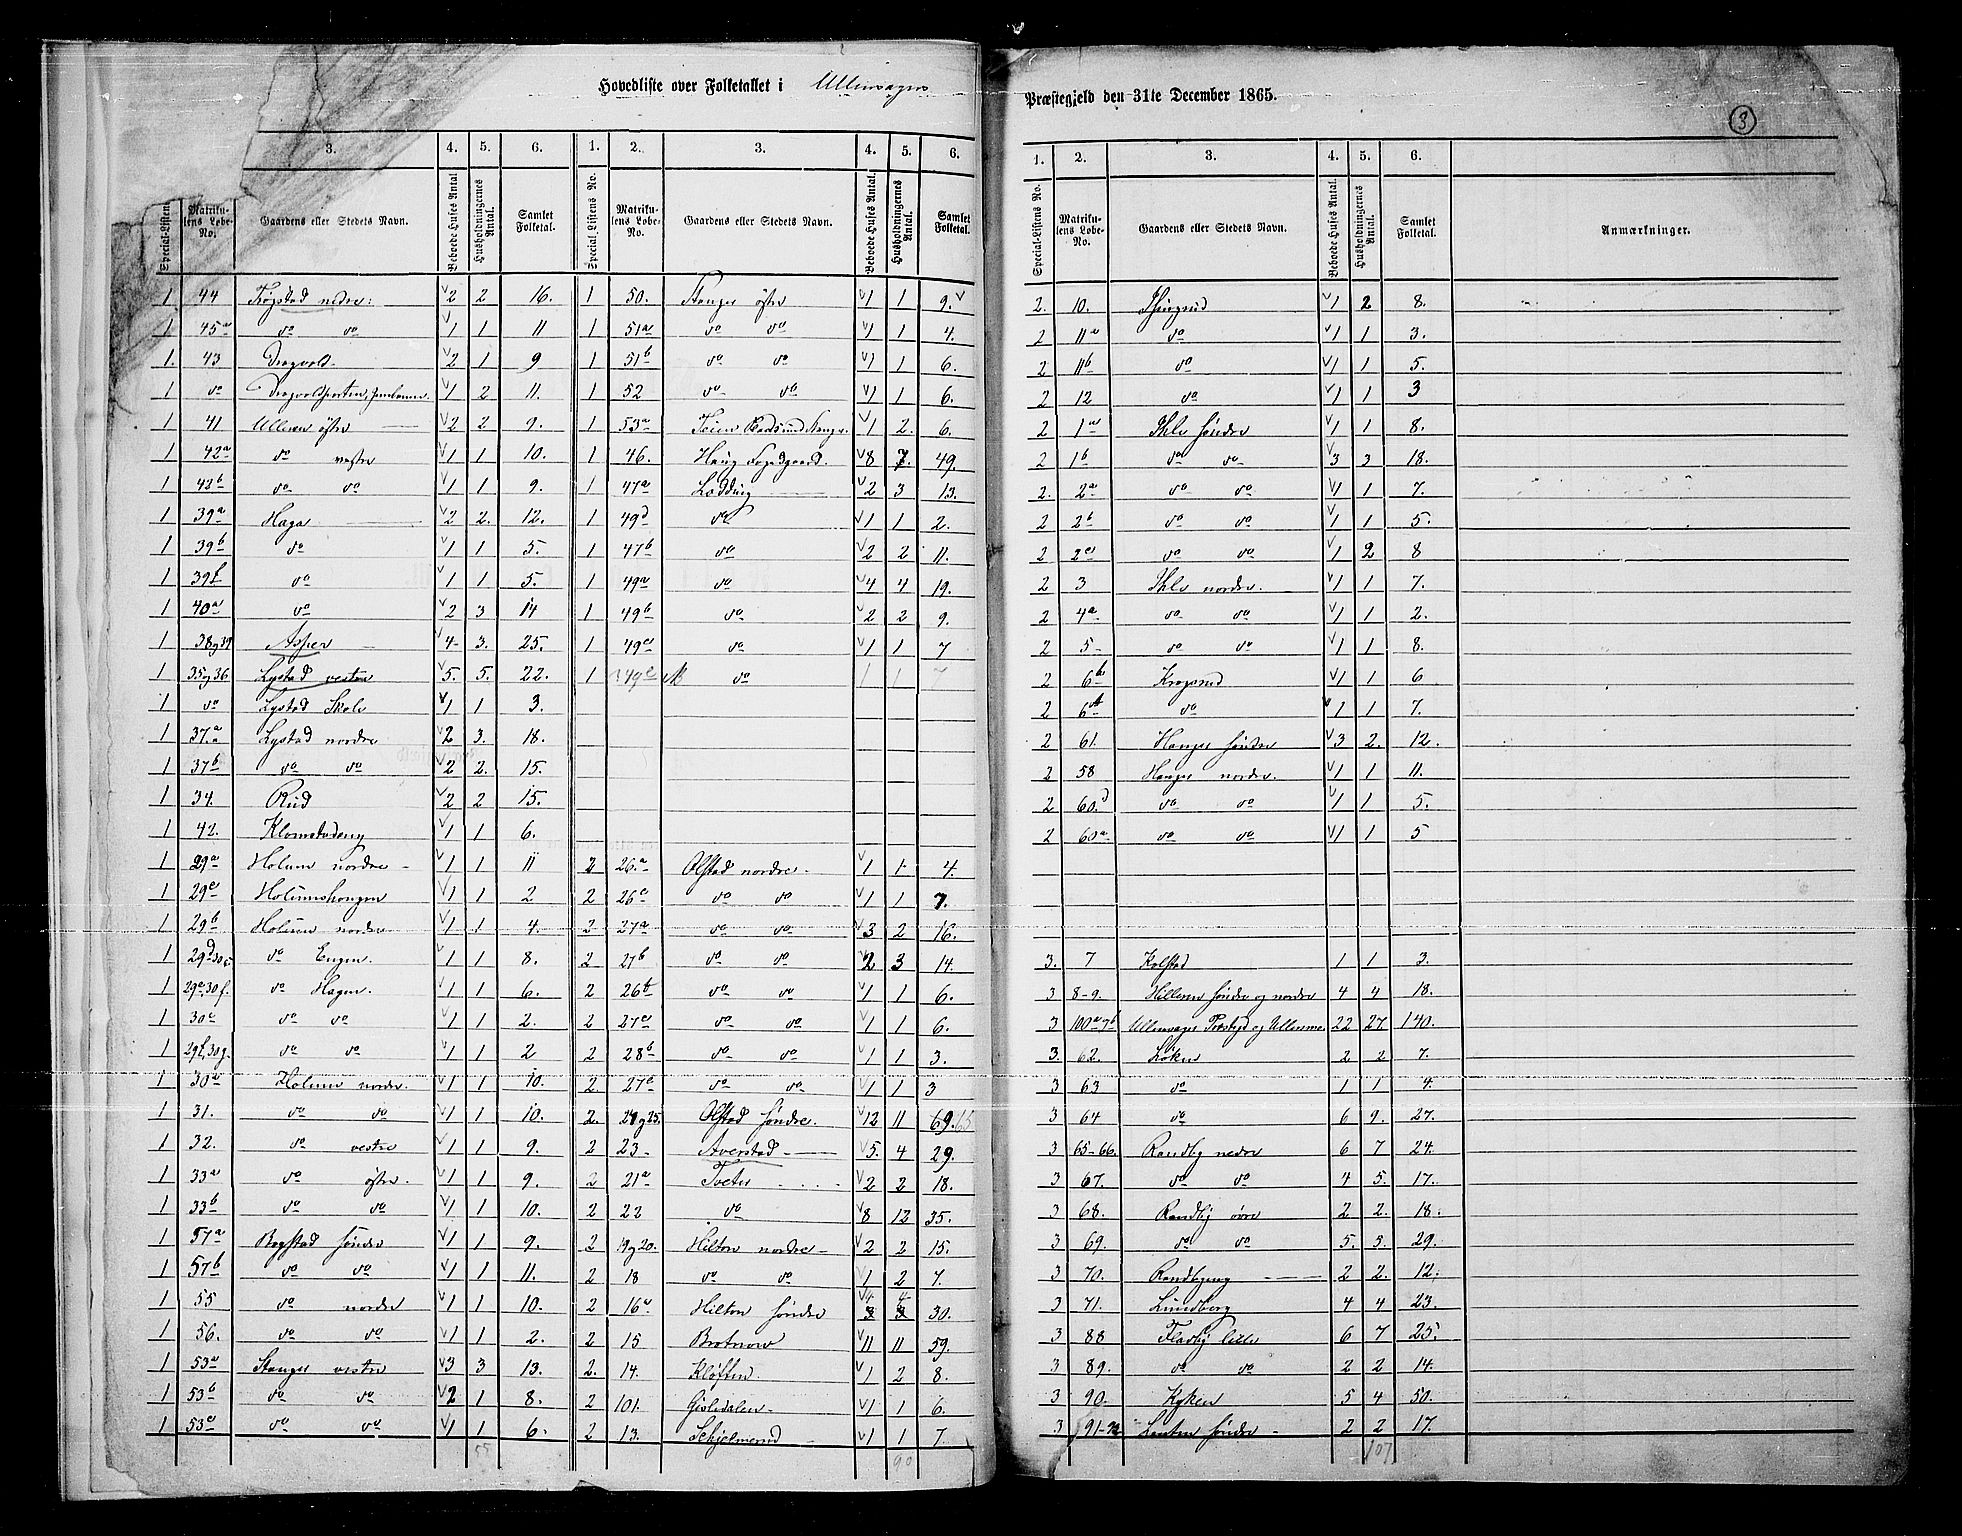 Hovedliste over Folketallet i Ullensagers
Præstegjeld den 31te December 1865.
3
3. 4. 5. 6. 1. 2. 3. 4. 5. 6.
Special-Listens Matrikulens Løbe-No. Gaardens eller Stedets Navn. Beboede Huses Antal Husholdningernes Antal. Samlet Folketal. Special-Listens No. Matrikulens Løbe-No. Gaardens eller Stedets Navn. Beboede Huses Antal. Husholdningernes Antal. Samlet Folketal.
1 44 Trøgstad nedre 2 2 16. 1 50. Stanger østre 1 1 9.
1 45a do do 1 1 11 1 51a do do 1 1 4.
1. 43 Dragvold 2 1 9 1 51b do do 1 1 6.
1 do 1 2 11. 1 52 do do 1 1 6.
1 41 Ulleren østre 2 2 9. 1 53a 1 2. 6.
1 42a do vestre 1 1 10. 1 46. Haug Fogedgaard. 8 7. 49.
1 42b do do 1 1 9. 1 47a Lødding 2 3 13.
1 39a Haga 2 2. 12. 1 49d do 1 1 2.
1 39b do 1 1 5. 1 47b do 2 2 11.
1 39f do 1 1 5. 1 49a do 4 4 19.
1 40a do 2 3 14 1 49b do 2 2 9.
1 38og39 Asper 4 3. 25. 1 49c do 1 1 7
1 35og36 Lystad vestre 5. 5. 22. 1 49e do 1 1 7
1 do Lystad Skole 1 1 3.
1 37a Lystad nordre 2 3. 18.
1 37b do do 2 2. 15.
1 34. Rud 2 2 15.
1 42. Klomstadeng 1 1 6.
1 29a Holum nordre 1 1 11 2 26a Olstad nordre 1 1 4.
1 29e Holumshougen 1 1 2 2 26c do do 1 1 7.
1 29b Holum nordre 1 1 4. 2 27a do do 3 2 16.
1 29d do Engen. 1 1 8. 2 27b do do 2 3 14.
1 29a,30f. do Hagen. 1 1 6. 2 26b do do 1 1 6.
1 30c do do 1 1 2. 2 27c do do 1 1 6.
1 29f,30g. do do 1 1 2 2 28b do do 1 1 3.
1 30a Holum nordre. 1 1 10. 2. 27e do do 1 1 3
1 31. do do 1 1 10. 2. 24og25. Olstad søndre. 12 11 69. 65
1 32. do vestre 1 1 9. 2 23 Averstad 5. 4 29.
1 33a do østre. 1 1 9. 2 21a Tveter 2 2 18.
1 33b do do 1 1 10. 2 22 do 8 12 35.
1 57a Bogstad søndre 1 1 9. 2 19og20. Hilton nordre 2 2 15.
1 57b do do 1 1 11. 2 18 do do 1 2 7.
1 55 do nordre 1 1 10. 2 16a Hilton søndre 3 4 3 4 30.
1 56. do do 1 1 2. 2 15 Brotnow 11 11 59.
1 53a Stanger vestre 3 3 13. 2. 14. Kløften 1 2 8.
1 53b do do 2 1 8. 2 101. Gisledalen 1 1 6.
1 53c do do 1 1 6. 2 13. Skjelmerud 1 1 7.
55 90
1. 2. 3. 4. 5. 6.
Special-Listens No. Matrikulens Løbe-No. Gaardens eller Stedets Navn. Beboede Huses Antal. Husholdningernes Antal. Samlet Folketal. Anmærkninger.
2. 10. 1 2 8.
2 11a do 1 1 3.
2 11b do 1 1 5.
2 12 do 1 1 3
2 1a Ihle søndre 1 1 8.
2 1b do do 3 3 18.
2. 2a do do 1 1 7.
2 2b do do 1 1 5.
2 2c do do 1 2 8
2 3 Ihle nordre. 1 1 7.
2 4a do do 1 1 2.
2 5 do do 1 1 8.
2 6b Krogsrud 1 1 6
2 6 do 1 1 7.
2 61. Hanger søndre 3 2. 12.
2 58 Hanger nordre. 1 1 11.
2 60d do do 1 1 5.
2 60a do do 1 1 5
3. 7 Kolstad 1 1 3.
3 8-9. Hilleren søndre og nordre 4 4 18.
3 100a7b Ullensager Præstegd og Ullensmo. 22 27 140.
3. 62. Løken 2 2 7.
3 63 do 1 1 4.
3 64 do 6 9. 27.
3 65-66. Randby nedre 6 7 24.
3 67. do do 4 5. 17.
3 68. Randby øvre 2 2. 18.
3 69. do do 5. 5. 29.
3 70. Randbyeng 2 2. 12.
3 71. Lundberg 4 4 23.
3 88 Fladby lille 6 7 25.
3 89. do do 2 2 14.
3 90. Kyken 5 4 50.
3 Lauten søndre 2 2 17.
107